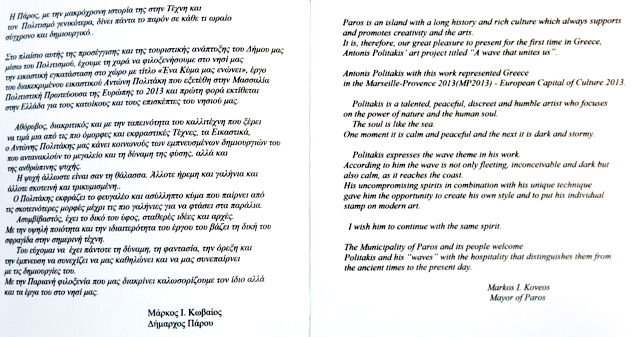 Η Πάρος, με την μακρόχρονη ιστορία της στην Τέχνη και
τον Πολιτισμό γενικότερα, δίνει πάντα το παρόν σε κάθε τι ωραίο
σύγχρονο και δημιουργικό..
Στο πλαίσιο αυτής της προσέγγισης και της τουριστικής ανάπτυξης του Δήμου μας
μέσω του Πολιτισμού, έχουμε τη χαρά να φιλοξενήσουμε στο νησί μας
την εικαστική εγκατάσταση στο χώρο με τίτλο «Ένα Κύμα μας ενώνει», έργο
του διακεκριμένου εικαστικού Αντώνη Πολιτάκη που εξετέθη στην Μασσαλία
Πολιτιστική Πρωτεύουσα της Ευρώπης το 2013 και πρώτη φορά εκτίθεται
στην Ελλάδα για τους κατοίκους και τους επισκέπτες του νησιού μας.
Αθόρυβος, διακριτικός και με την ταπεινότητα του καλλιτέχνη που ξέρει
να τιμά μια από τις πιο όμορφες και εκφραστικές Τέχνες, τα Εικαστικά,
ο Αντώνης Πολιτάκης μας κάνει κοινωνούς των εμπνευσμένων δημιουργιών του
που αντανακλούν το μεγαλείο και τη δύναμη της φύσης, αλλά και
της ανθρώπινης ψυχής.
Η ψυχή άλλωστε είναι σαν τη θάλασσα. Άλλοτε ήρεμη και γαλήνια και
άλλοτε σκοτεινή και τρικυμισμένη..
Ο Πολιτάκης εκφράζει το φευγαλέο και ασύλληπτο κύμα που παίρνει από
τις σκοτεινότερες μορφές μέχρι τις πιο γαλήνιες για να φτάσει στα παράλια.
Ασυμβίβαστός, έχει το δικό του ύφος, σταθερές ιδέες και αρχές.
Με την υψηλή ποιότητα και την ιδιαιτερότητα του έργου του βάζει τη δική του
σφραγίδα στην σημερινή τέχνη.
Του εύχομαι να έχει πάντοτε τη δύναμη, τη φαντασία, την όρεξη και
την έμπνευση να συνεχίζει να μας καθηλώνει και να μας συνεπαίρνει
με τις δημιουργίες του.
Με την Παριανή φιλοξενία που μας διακρίνει καλωσορίζουμε τον ίδιο αλλά
και τα έργα του στο νησί μας.
Μάρκος Ι. Κωβαίος
Δήμαρχος Πάρου
Paros is an island with a long history and rich culture which always supports
and promotes creativity and the arts.
It is, therefore, our great pleasure to present for the first time in Greece,
Antonis Politakis' art project titled "A wave that unites us".
Antonis Politakis with this work represented Greece
in the Marseille-Provence 2013(MP2013) - European Capital of Culture 2013.
Politakis is a talented, peaceful, discreet and humble artist who focuses
on the power of nature and the human soul.
The soul is like the sea.
One moment it is calm and peaceful and the next it is dark and stormy.
Politakis expresses the wave theme in his work.
According to him the wave is not only fleeting, inconceivable and dark but
also calm, as it reaches the coast.
His uncompromising spirits in combination with his unique technique
gave him the opportunity to create his own style and to put his individual
stamp on modern art.
I wish him to continue with the same spirit.
The Municipality of Paros and its people welcome
Politakis and his "waves" with the hospitality that distinguishes them from
the ancient times to the present day.
Markos I. Koveos
Mayor of Paros